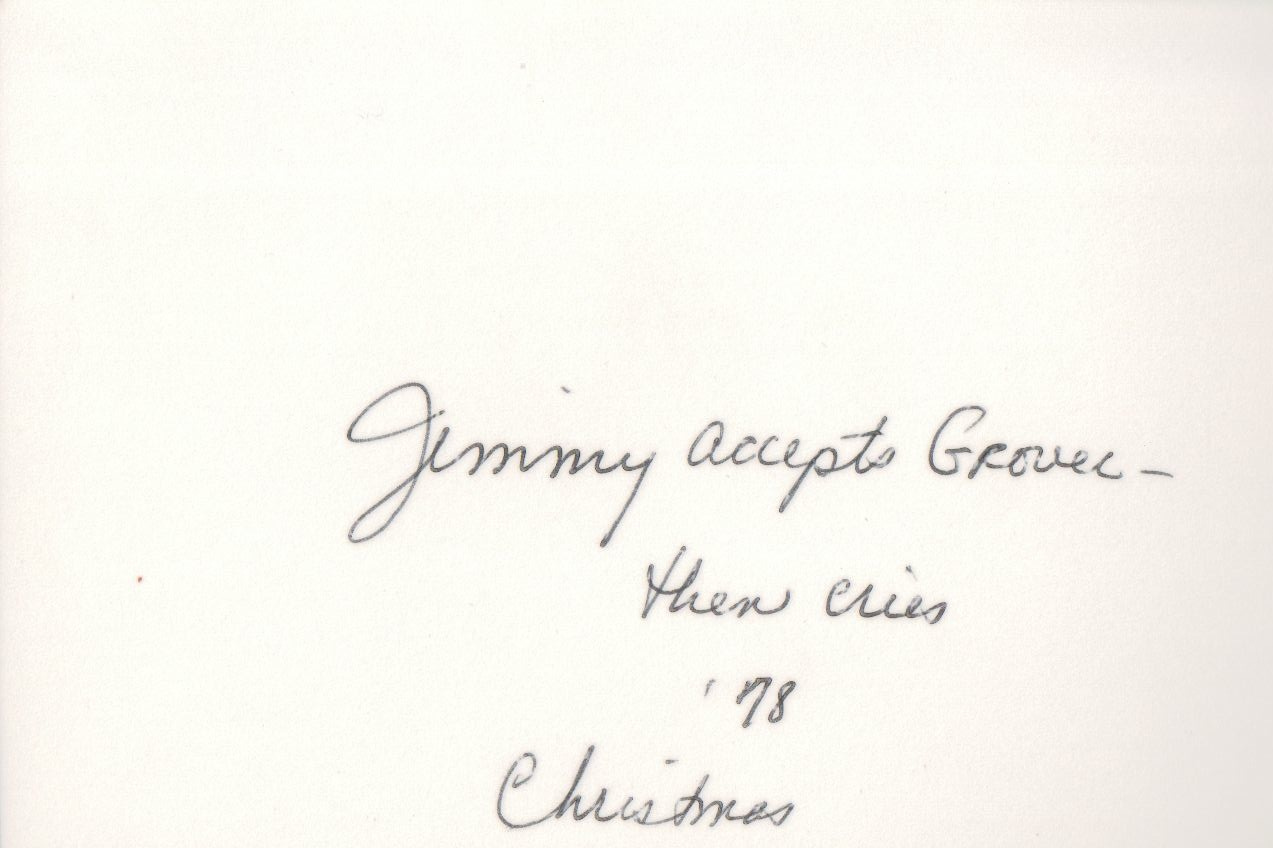 Jimmy accepts Grover -
then cries
'78
Christmas